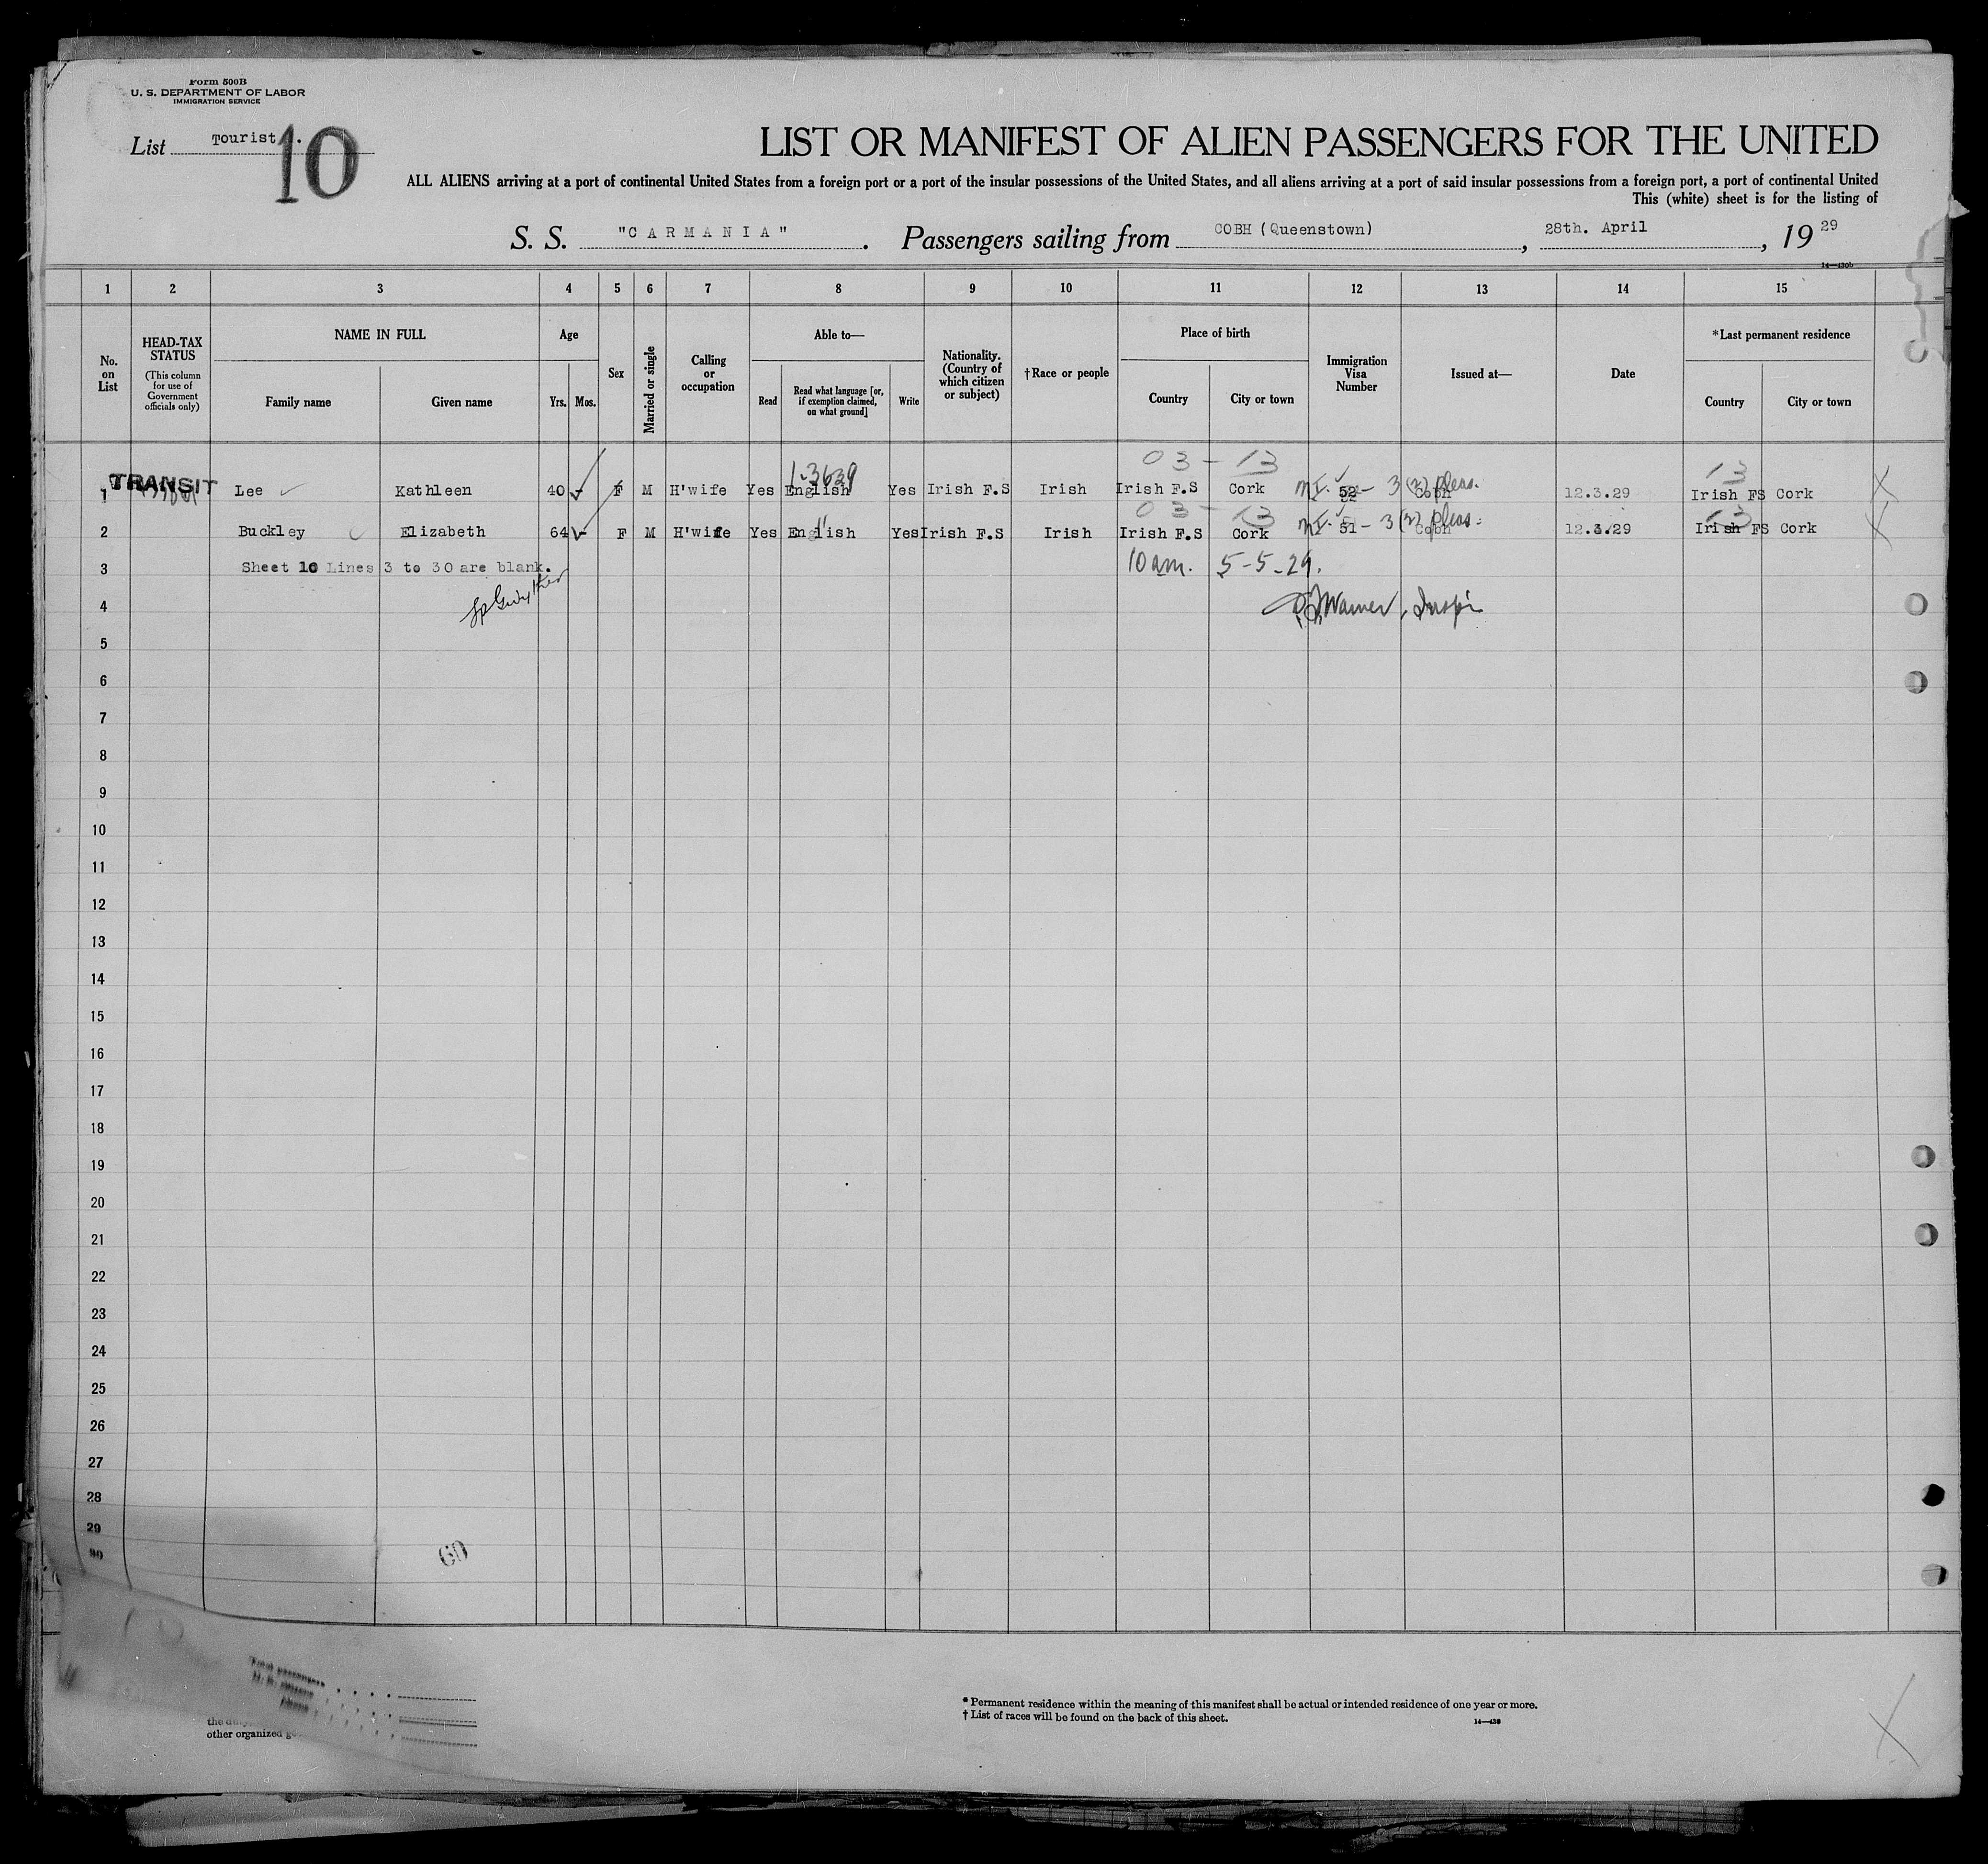 Form 500B
U. S. DEPARTMENT OF LABOR
IMMIGRATION SERVICE
List Tourist. 10
LIST OR MANIFEST OF ALIEN PASSENGERS FOR THE UNITED
ALL ALIENS arriving at a port of continental United States from a foreign port or a port of the insular possessions of the United States, and all aliens arriving at a port of said insular possessions from a foreign port, a port of continental United
This (white) sheet is for the listing of
S. S. "CARMANIA". Passengers sailing from COBH (Queenstown), 28th. April, 19 29
14—430b
1 2 3 4 5 6 7 8 9 10 11 12 13 14 15
No. on List
HEAD-TAX STATUS
(This column for use of Government officials only)
NAME IN FULL
Family name Given name
Age
Yrs. Mos.
Sex
Married or single
Calling or occupation
Able to—
Read
Read what language [or, if exemption claimed, on what ground]
Write
Nationality. (Country of which citizen or subject)
†Race or people
Place of birth
Country City or town
Immigration Visa Number
Issued at—
Date
*Last permanent residence
Country City or town
03 - 13
1 TRANSIT Lee Kathleen 40 - F M H'wife Yes English Yes Irish F.S Irish Irish F.S Cork 52 - 3(2) pleas. Cobh 12.3.29 13 Irish FS Cork
03 - 13
2 Buckley Elizabeth 64 - F M H'wife Yes English Yes Irish F.S Irish Irish F.S Cork 51 - 3(2) pleas. Cobh 12.3.29 13 Irish FS Cork
3 Sheet 10 Lines 3 to 30 are blank. 10 am. 5-5-29.
4 Warner, Insp
5
6
7
8
9
10
11
12
13
14
15
16
17
18
19
20
21
22
23
24
25
26
27
28
29
30
60
Total passengers
U. S. citizens
Aliens
other organized
* Permanent residence within the meaning of this manifest shall be actual or intended residence of one year or more.
† List of races will be found on the back of this sheet.